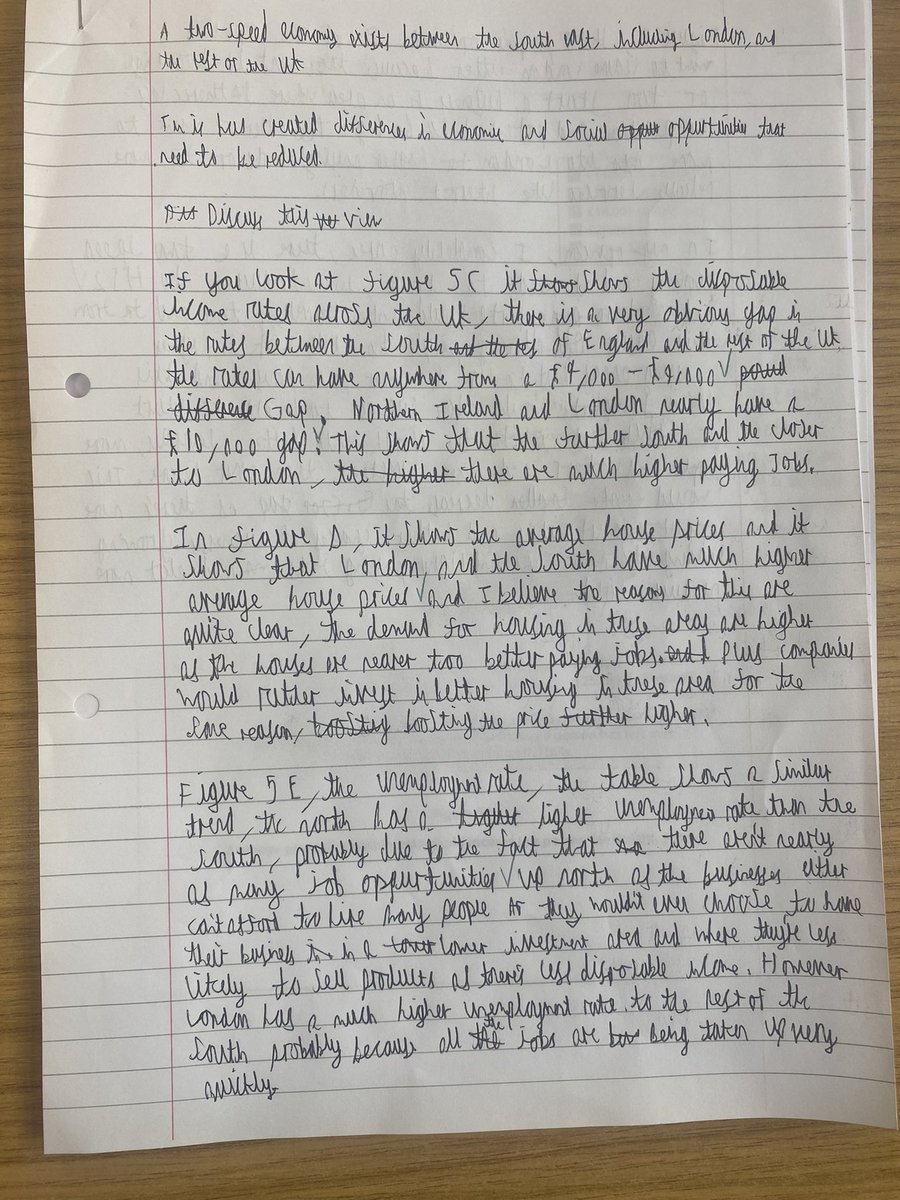 A two-speed economy exists between the south east, including London, and
the rest of the UK
This has created differences in economic and social oppurtunities that
need to be reduced.
Discuss this view
If you look at figure 5C it shows the disposable
income rates across the UK, there is a very obvious gap in
the rates between the south of England and the rest of the UK.
the rates can have anywhere from a £4,000 - £9,000
Gap, Northern Ireland and London nearly have a
£10,000 gap! This shows that the further south and the closer
to London, there are much higher paying Jobs.
In figure D, it shows the average house prices and it
shows that London, and the south have much higher
average house prices and I believe the reasons for this are
quite clear, the demand for housing in these areas are higher
as the houses are nearer too better paying jobs. Plus companies
would rather invest in better housing in these area for the
same reason, boosting the price higher.
Figure 5E, the unemployment rate, the table shows a similar
trend, the north has a higher unemployment rate than the
south, probably due to the fact that there aren't nearly
as many job oppurtunities up north as the businesses either
can't afford to hire many people or they wouldn't even choose to have
their business in a lower investment area and where they're less
likely to sell products as there's less disposable income. However
London has a much higher unemployment rate. to the rest of the
south probably because all the jobs are being taken up very
quickly.